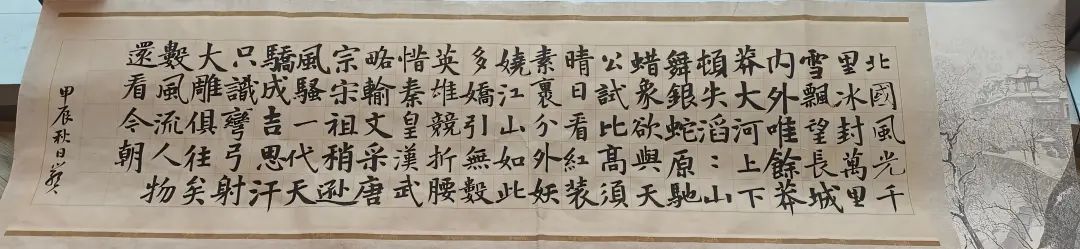 北國風光千
里冰封萬里
雪飄望長城
内外唯餘莽
莽大河上下
頓失滔：山
舞銀蛇原馳
蜡象欲與天
公試比高須
晴日看紅装
素裹分外妖
嬈江山如此
多嬌引無數
英雄競折腰
惜秦皇漢武
略輸文采唐
宗宋祖稍逊
風騷一代天
驕成吉思汗
只識彎弓射
大雕俱往矣
數風流人物
還看今朝
甲辰秋日